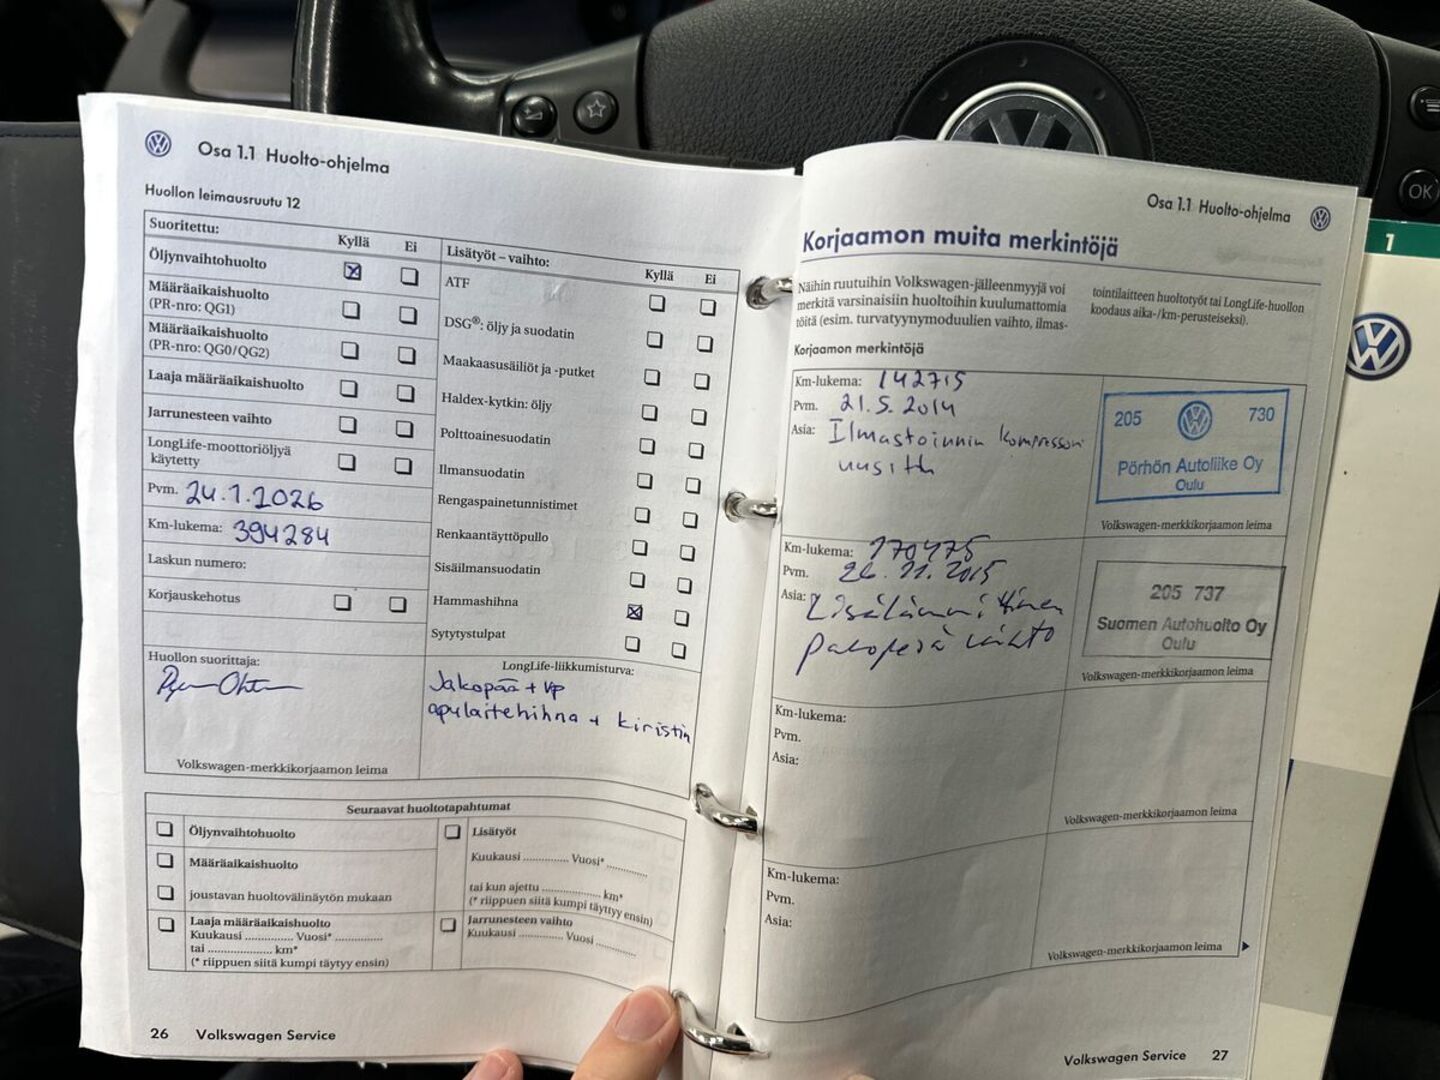 Osa 1.1 Huolto-ohjelma
Huollon leimausruutu 12
Suoritettu:
Kyllä Ei
Öljynvaihtohuolto
Määräaikaishuolto
(PR-nro: QG1)
Määräaikaishuolto
(PR-nro: QG0/QG2)
Laaja määräaikaishuolto
Jarrunesteen vaihto
LongLife-moottoriöljyä
käytetty
Pvm. 24.1.2026
Km-lukema: 394284
Laskun numero:
Korjauskehotus
Huollon suorittaja:
Volkswagen-merkkikorjaamon leima
Lisätyöt – vaihto:
Kyllä Ei
ATF
DSG®: öljy ja suodatin
Maakaasusäiliöt ja -putket
Haldex-kytkin: öljy
Polttoainesuodatin
Ilmansuodatin
Rengaspainetunnistimet
Renkaantäyttöpullo
Sisäilmansuodatin
Hammashihna
Sytytystulpat
LongLife-liikkumisturva:
Jakopää + vp
apulaitehihna + kiristin
Seuraavat huoltotapahtumat
Öljynvaihtohuolto
Määräaikaishuolto
joustavan huoltovälinäytön mukaan
Laaja määräaikaishuolto
Kuukausi .............. Vuosi* ..............
tai .................... km*
(* riippuen siitä kumpi täytyy ensin)
Lisätyöt
Kuukausi .............. Vuosi* ............
tai kun ajettu .................. km*
(* riippuen siitä kumpi täyttyy ensin)
Jarrunesteen vaihto
Kuukausi .............. Vuosi ............
26 Volkswagen Service
Osa 1.1 Huolto-ohjelma
Korjaamon muita merkintöjä
Näihin ruutuihin Volkswagen-jälleenmyyjä voi
merkitä varsinaisiin huoltoihin kuulumattomia
töitä (esim. turvatyynymoduulien vaihto, ilmas-
tointilaitteen huoltotyöt tai LongLife-huollon
koodaus aika-/km-perusteiseksi).
Korjaamon merkintöjä
Km-lukema: 142715
Pvm. 21.5.2014
Asia: Ilmastoinnin kompressori
uusittu
205 730
Pörhön Autoliike Oy
Oulu
Volkswagen-merkkikorjaamon leima
Km-lukema: 170475
Pvm. 26.11.2015
Asia: Lisälämmittimen
pakoperä vaihto
205 737
Suomen Autohuolto Oy
Oulu
Volkswagen-merkkikorjaamon leima
Km-lukema:
Pvm.
Asia:
Volkswagen-merkkikorjaamon leima
Km-lukema:
Pvm.
Asia:
Volkswagen-merkkikorjaamon leima
Volkswagen Service 27
1
OK